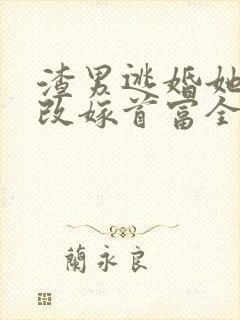 渣男逃婚她
改嫁首富全
蘭永良